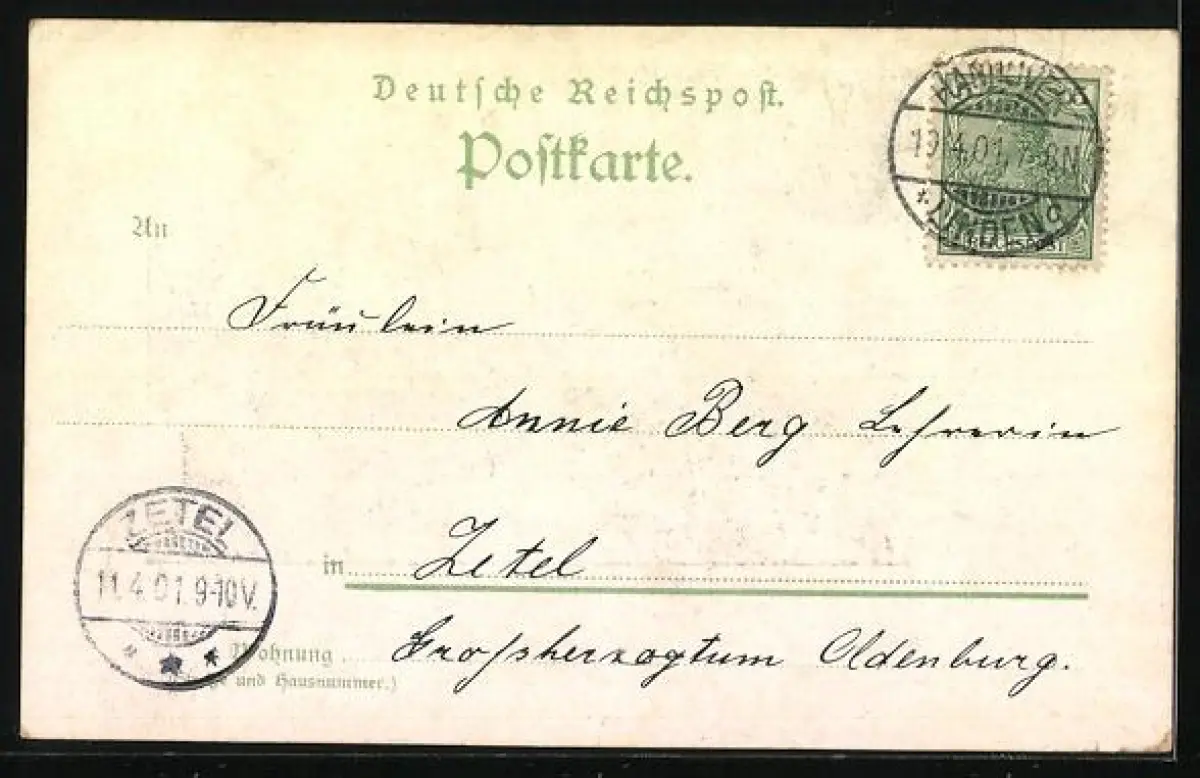 Deutsche Reichspost.
Postkarte.
HANNOVER
4.01.
LINDEN
An
Fräulein
Annie Berg Lehrerin
in Zetel
ZETEL
11.4.01.9-10V.
Wohnung
Grossherzogtum Oldenburg.
und Hausnummer.)